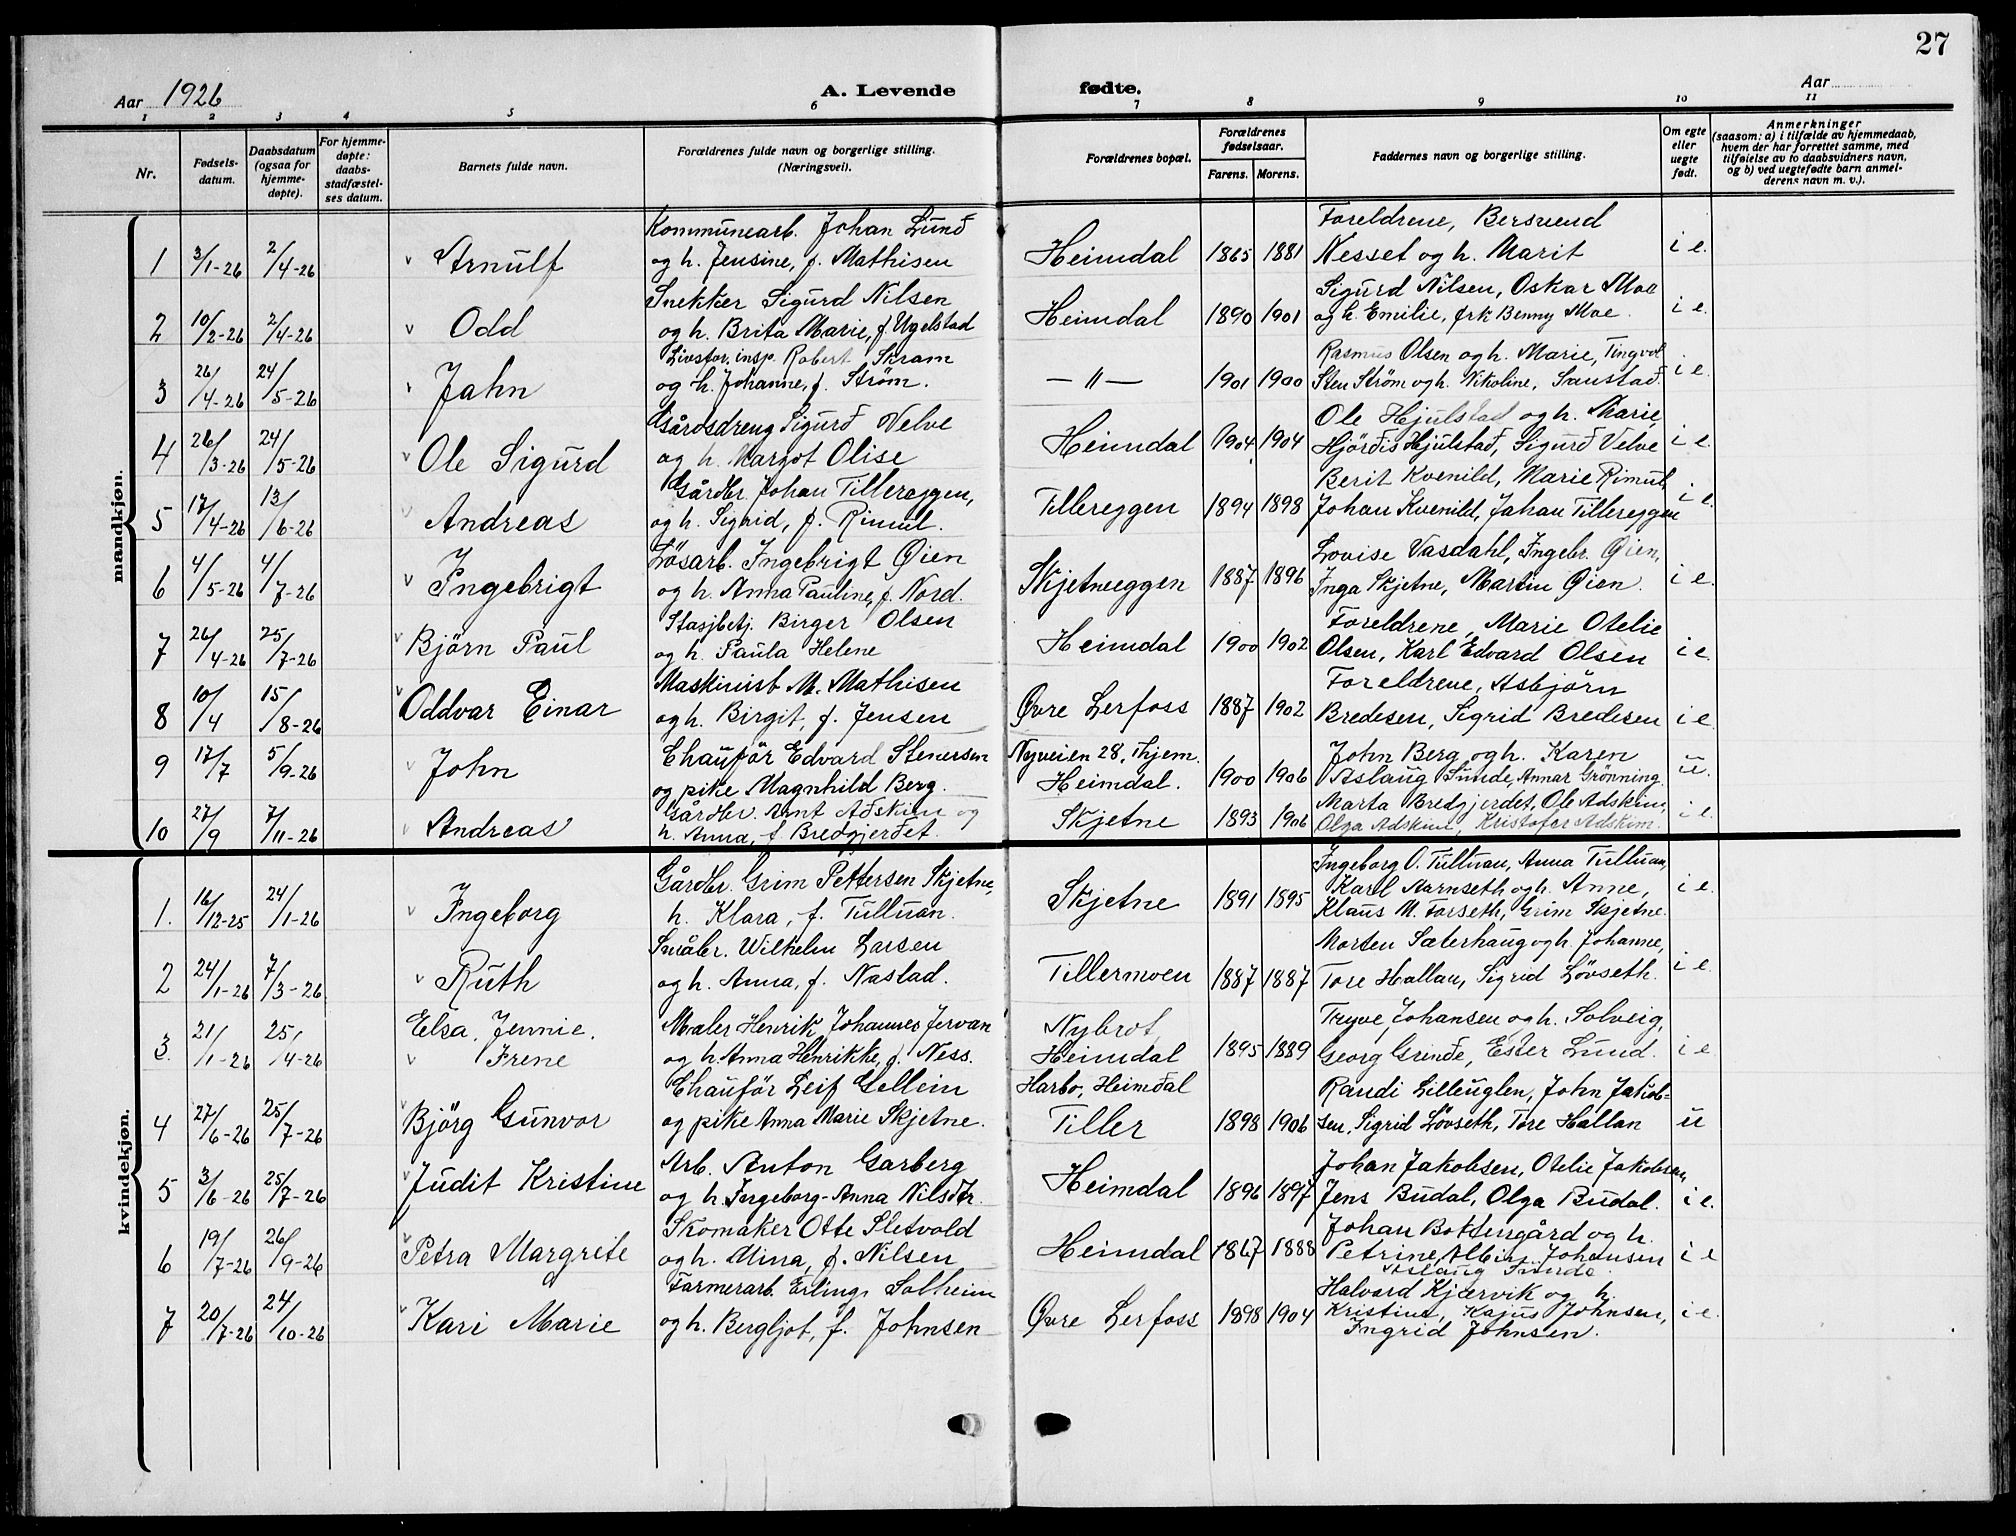 27
Aar 1926
A. Levende
fødte.
Aar
1 2 3 4 5 6 7 8 9 10 11
Nr.
Fødsels-
datum.
Daabsdatum
(ogsaa for
hjemme-
døpte).
For hjemme-
døpte:
daabs-
stadfæstel-
ses datum.
Barnets fulde navn.
Forældrenes fulde navn og borgerlige stilling.
(Næringsvei).
Forældrenes bopæl.
Forældrenes
fødselsaar.
Farens. Morens.
Faddernes navn og borgerlige stilling.
Om egte
eller
uegte
født.
Anmerkninger
(saasom: a) i tilfælde av hjemmedaab,
hvem der har forrettet samme, med
tilføielse av to daabsvidners navn,
og b) ved uegtefødte barn anmel-
derens navn m. v.).
mandkjøn.
Kommunearb. Johan Lund Foreldrene, Bersvend
1 3/1-26 2/4-26 v Arnulf og h. Jensine, f. Mathisen Heimdal 1865 1881 Nesset og h. Marit i e.
Snekker Sigurd Nilsen Sigurd Nilsen, Oskar Moe
2 10/2-26 2/4-26 v Odd og h. Brita Marie, f. Ugelstad Heimdal 1890 1901 og h. Emilie, frk Benny Moe. i e.
Livsfor. insp. Robert Skram Rasmus Olsen og h. Marie, Tingvol
3 26/4-26 24/5-26 v Jahn og h. Johanne, f. Strøm. — " — 1901 1900 Sten Strøm og h. Nikoline, Saustad. i e.
Gårdsdreng Sigurd Velve Ole Hjulstad og h. Marie,
4 26/3-26 24/5-26 v Ole Sigurd og h. Margot Olise Heimdal 1904 1904 Hjördis Hjulstad, Sigurd Velve i e.
Gårdbr. Johan Tillereggen, Berit Kvenild, Marie Rimul,
5 17/4-26 13/6-26 v Andreas og h. Sigrid, f. Rimul. Tillereggen 1894 1898 Johan Kvenild, Johan Tillereggen i e.
Løsarb. Ingebrigt Øien Lovise Vasdahl, Ingebr. Øien,
6 4/5-26 4/7-26 v Ingebrigt og h. Anna Pauline, f. Nord. Skjetneeggen 1887 1896 Inga Skjetne, Martin Øien. i e.
Stasjbetj. Birger Olsen Foreldrene, Marie Otelie
7 26/4-26 25/7-26 v Björn Paul og h. Paula Helene Heimdal 1900 1902 Olsen, Karl Edvard Olsen i e.
Maskinist M. Mathisen Foreldrene, Asbjörn
8 10/4 15/8-26 v Oddvar Einar og h. Birgit, f. Jensen Øvre Lerfoss 1887 1902 Bredesen, Sigrid Bredesen i e
Chauför Edvard Stenersen Nyveien 28, Thjem. John Berg og h. Karen
9 17/7 5/9-26 v John og pike Magnhild Berg. Heimdal. 1900 1906 Aslaug Sunde, Annar Grønning. u.
Gårdbr. Arnt Adskim og Marta Bredgjerdet, Ole Adskim,
10 27/9 7/11-26 v Andreas h. Anna, f. Bredgjerdet. Skjetne 1893 1906 Olga Adskim, Kristofer Adskim. i e.
kvindekjøn.
Ingeborg O. Tulluan, Anna Tulluan,
Gårdbr. Grim Pettersen Skjetne, Karl Aarnseth og h. Anne,
1. 16/12-25 24/1-26 v Ingeborg h. Klara, f. Tulluan. Skjetne 1891 1895 Klaus M. Forseth, Grim Skjetne. i e.
Småbr. Wilhelm Larsen Morten Sæterhaug og h. Johanne,
2 24/1-26 7/3-26 v Ruth og h. Anna, f. Nastad. Tillermoen 1887 1887 Tore Hallan, Sigrid Lövseth. i e.
Elsa Jennie Maler Henrik Johannes Jervan Nybrot, Tryve Johansen og h. Solveig,
3. 21/1-26 25/4-26 v Irene og h. Anna Henrikke, f. Ness. Heimdal 1895 1889 Georg Grinde, Ester Lund. i e.
Chauför Leif Gellein Harbo, Heimdal Randi Lilleuglen, John Jakob-
4 27/6-26 25/7-26 v Björg Gunvor og pike Anna Marie Skjetne. Tiller 1898 1906 sen, Sigrid Lövseth, Tore Hallan u
Arb. Anton Garberg Johan Jakobsen, Otelie Jakobsen,
5 3/6-26 25/7-26 v Judit Kristine og h. Ingeborg-Anna Nilsdtr. Heimdal 1896 1897 Jens Budal, Olga Budal. i e.
Skomaker Otte Sletvold Johan Bottengård og h.
6 19/7-26 26/9-26 v Petra Margrete og h. Mina, f. Nilsen Heimdal 1867 1888 Petrine, Albin Johansen i e
Aslaug Sunde
Farmerarb. Erling Solheim Halvard Kjærvik og h.
7 20/7-26 24/10-26 v Kari Marie og h. Bergljot, f. Johnsen Øvre Lerfoss 1898 1904 Kristine, Kajus Johnsen, i e.
Ingrid Johnsen.